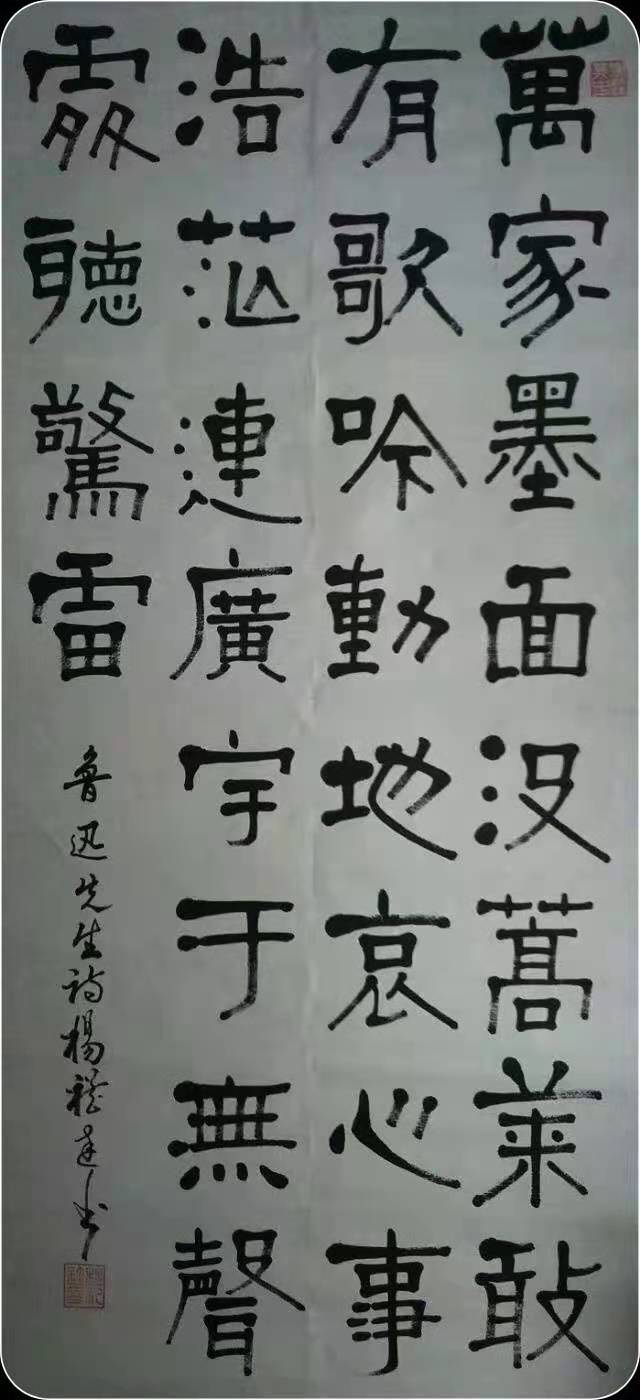 萬家墨面没蒿萊敢
有歌吟動地哀心事
浩茫連廣宇于無聲
處聽驚雷
魯迅先生诗楊书